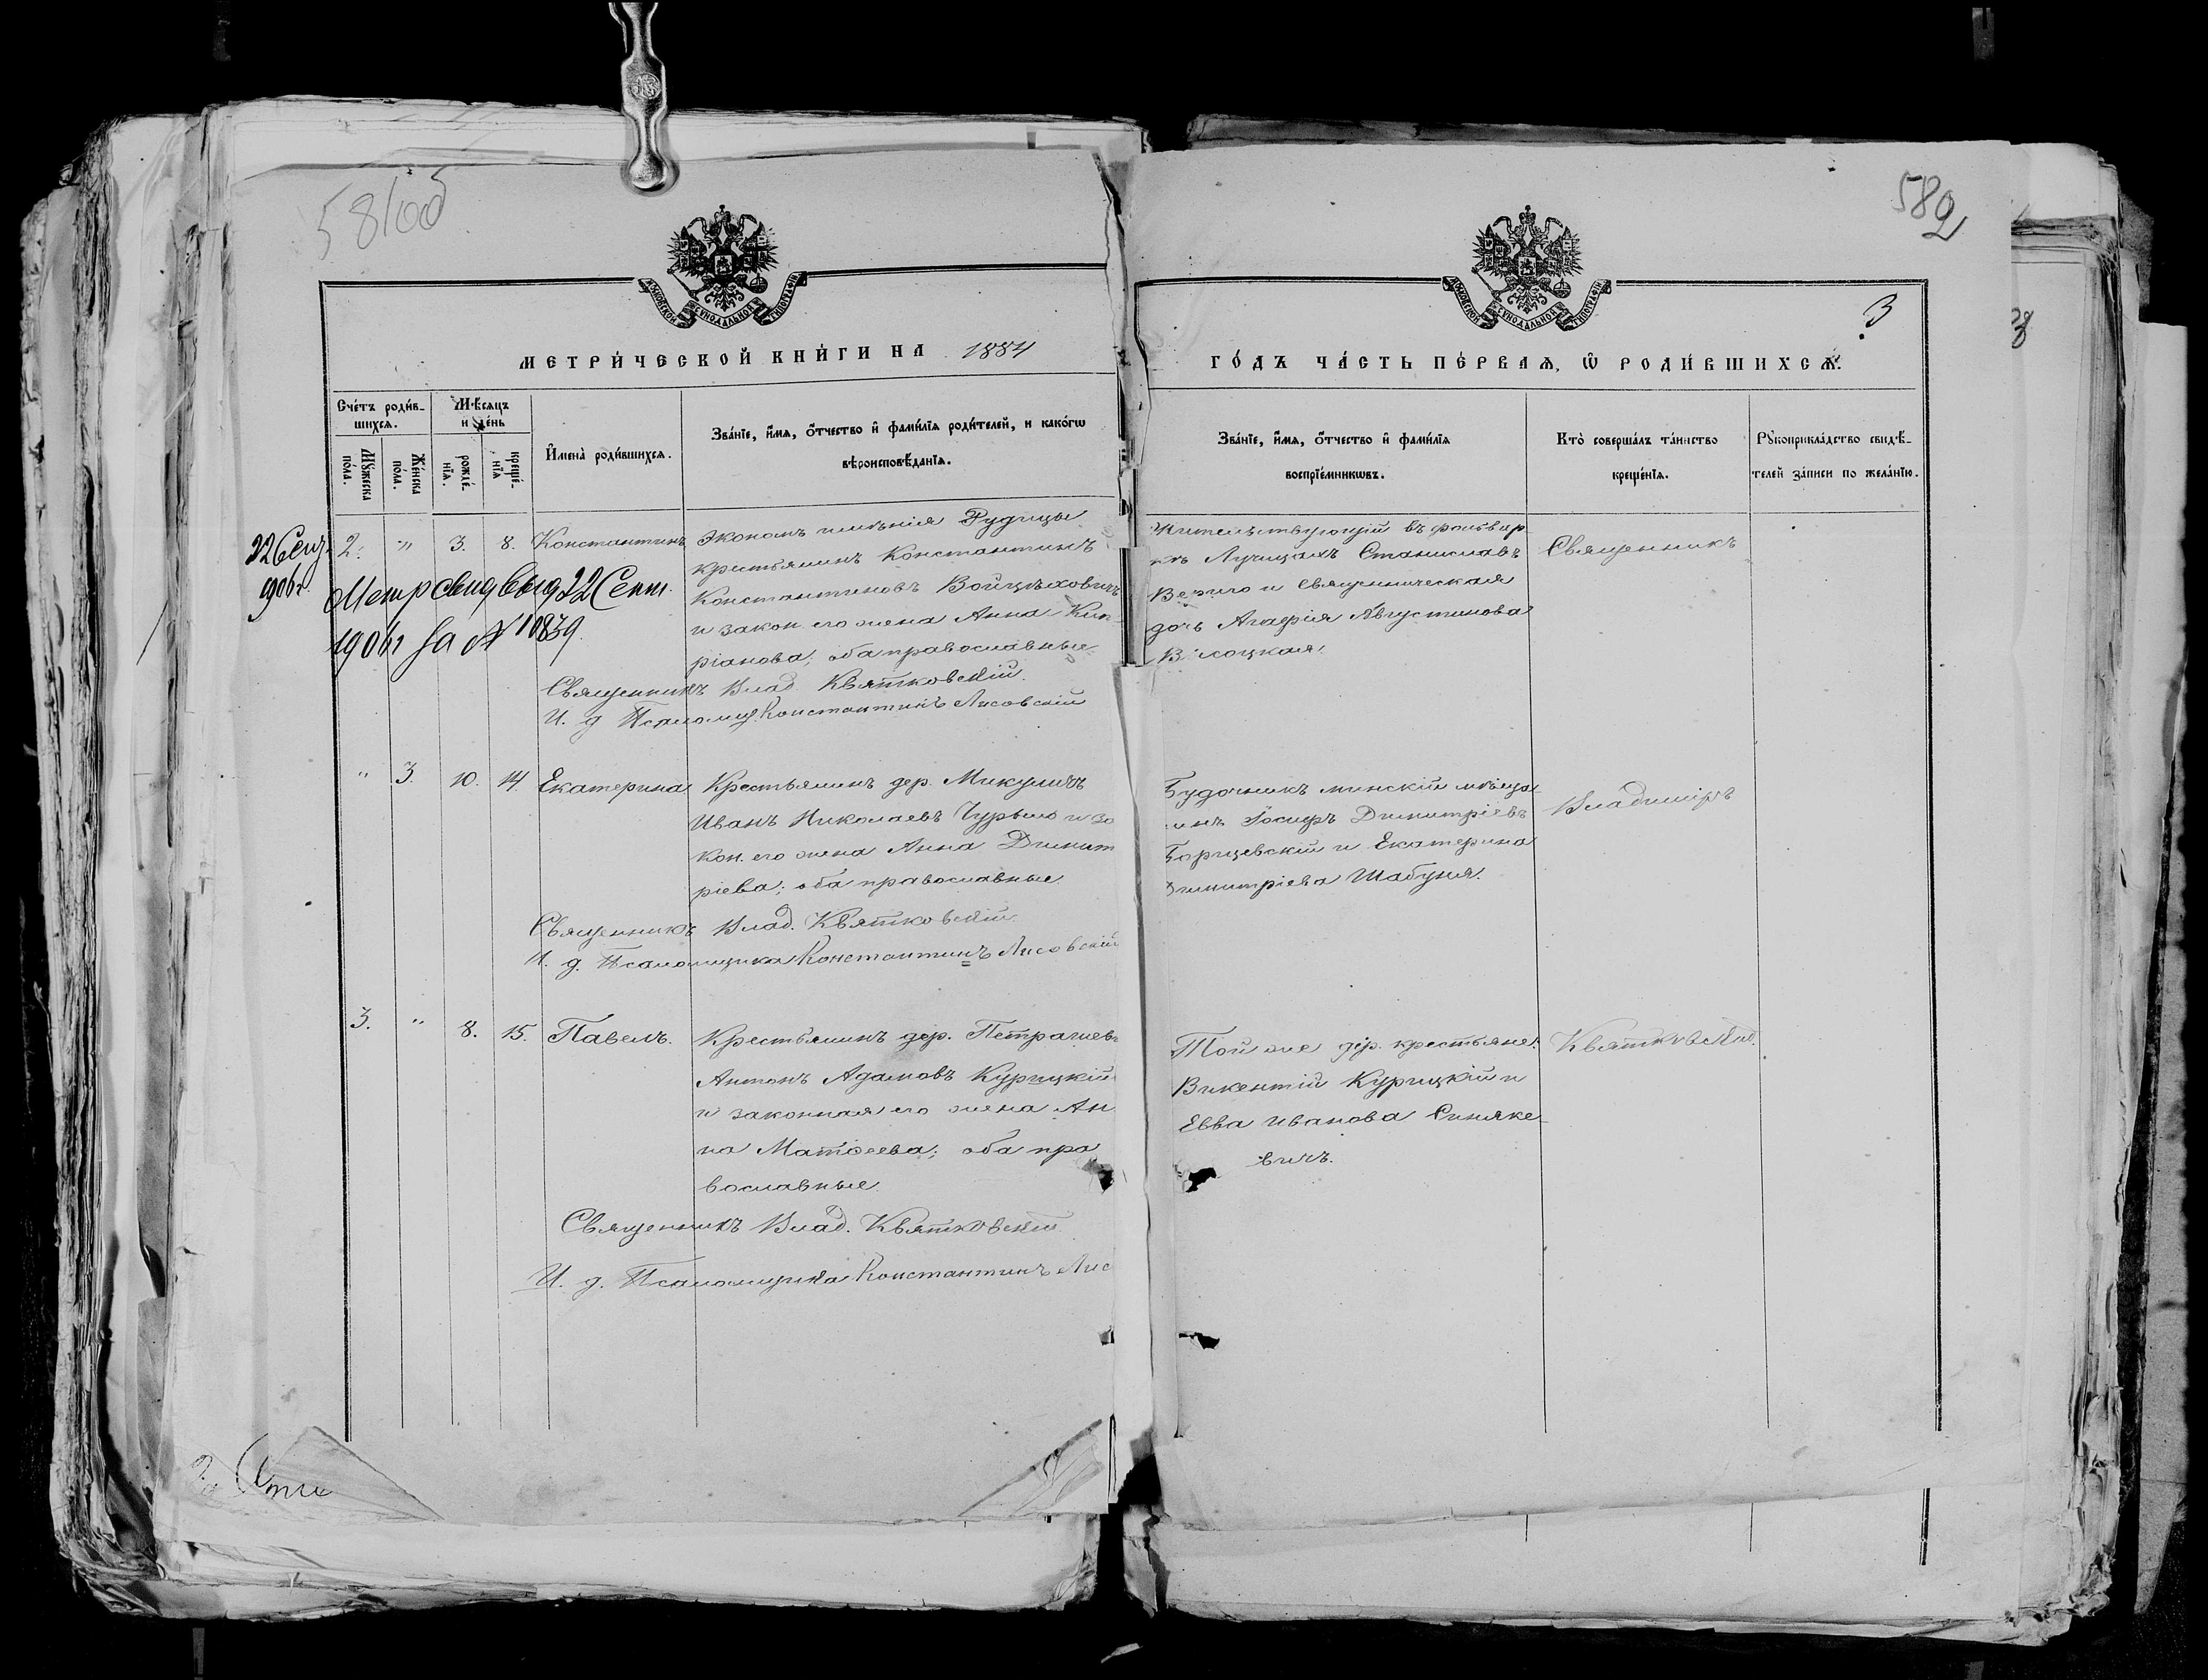 58об
582
3
МОСКОВСКОЙ СѴНОДАЛЬНОЙ ТИПОГРАФІИ
МОСКОВСКОЙ СѴНОДАЛЬНОЙ ТИПОГРАФІИ
МЕТРИ́ЧЕСКОЙ КНИ́ГИ НА 1884
ГО́ДЪ ЧА́СТЬ ПЕ́РВАЯ, Ѡ РОДИ́ВШИХСЯ.
Сче́тъ роди́в-
шихся.
Мѣсяцъ
и де́нь
Мꙋжеска
по́ла.
Же́нска
по́ла.
рожде́-
нїя.
креще́-
нїя
И҆мена̀ роди́вшихся.
Зва́нїе, и҆́мя, ѻ҆́тчество и҆ фами́лїя роди́телей, и како́гѡ
вѣроисповѣ́данїя.
Зва́нїе, и҆́мя, ѻ҆́тчество и҆ фами́лїя
воспрїе́мникѡвъ.
Кто̀ соверша́лъ та́инство
креще́нїя.
Рꙋкоприкла́дство свидѣ́-
телей за́писи по жела́нїю.
22 Сент.
1906 г.
2. " 3. 8. Константинъ
Экономъ имѣнія Рудицы
крестьянинъ Константинъ
Константиновъ Войцѣховичъ
и закон. его жена Анна Кип
ріанова; оба православные.
Метр свид выд 22 Сент.
1906 г за № 10839.
Священникъ Влад. Квятковскій.
И. д. Псаломщ. Константинъ Лисовскій
Жительствующій въ фольвар
кѣ Лучицахъ Станиславъ
Верило и Священническая
дочь Агафія Августинова
Вилоцкая.
Священникъ
" 3. 10. 14. Екатерина
Крестьянинъ дер. Микуличъ
Иванъ Николаевъ Чурыло и за
кон. его жена Анна Димит
ріева; оба православные.
Священникъ Влад. Квятковскій.
И. д. Псаломщика Константинъ Лисовскій
Будочникъ минскій мѣща
инъ Іосифъ Димитріевъ
Борщевскій и Екатерина
Димитріева Шабуня.
Владиміръ
3. " 8. 15. Павелъ.
Крестьянинъ дер. Петрашев
Антонъ Адамовъ Курицкій
и законная его жена Ан
на Матѳеева; оба пра
вославные.
Священникъ Влад. Квятковскій.
И. д. Псаломщика Константинъ Лис
Той же дер. крестьяне:
Викентій Курицкій и
Евва Иванова Синяке
вичъ.
Квятковскій.